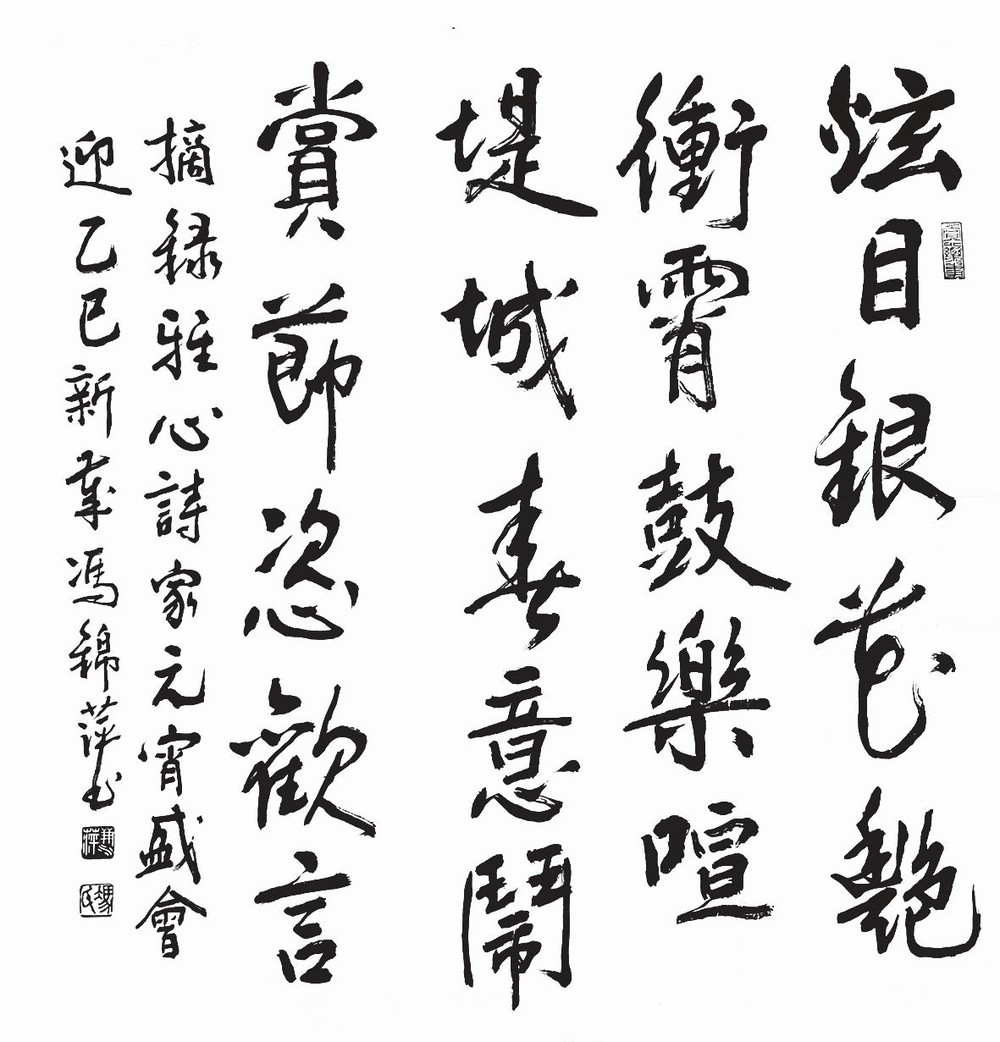 炫目銀花艷
衝霄鼓樂喧
堤城春意鬧
賞節恣歡言
摘録雅心詩家元宵盛會
迎乙巳新春馮錦萍书